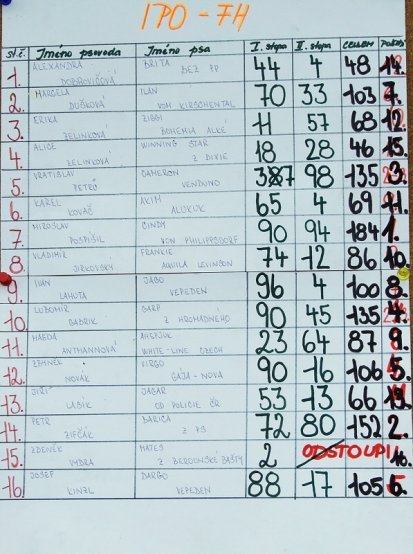 IPO - FH
st.č. Jméno psovoda Jméno psa I. stopa II. stopa CELKEM Pořadí
1. ALEXANDRA DOBROVIČOVÁ BRITA BEZ PP 44 4 48 14.
2. MARCELA DUŠKOVÁ ILAN VOM KIRSCHENTAL 70 33 103 7.
3. ERIKA ZELINKOVÁ ZIGGI BOHEMIA ALKÉ 11 57 68 12.
4. ALICE ZELINKOVÁ WINNING STAR Z DIXIE 18 28 46 15.
5. VRATISLAV PETRŮ CAMERON VENDUNO 37 98 135 3.
6. KAREL KOVÁČ AKIM ALUKUK 65 4 69 11.
7. MIROSLAV POSPÍŠIL CINDY VON PHILIPPSDORF 90 94 184 1.
8. VLADIMÍR JIRKOVSKÝ FRANKIE AQUILA LEVINSON 74 12 86 10.
9. IVAN LAHUTA JAGO VEPEDEN 96 4 100 8.
10. LUBOMÍR GABRIK GARP Z HROMADNÉHO 90 45 135 4.
11. MAGDA ANTMANNOVÁ WHITE-LINE CZECH 23 64 87 9.
12. ZDENĚK NOVÁK VIRGO GAJA-NOVA 90 16 106 5.
13. JIŘÍ LABÍK JAGAR OD POLICIE ČR 53 13 66 13.
14. PETR ZIFČÁK BARICA Z PS 72 80 152 2.
15. ZDENĚK VYDRA MATES Z BEROUNSKÉ BAŠTY 2 ODSTOUPIL 16.
16. JOSEF KINZL DARGO VEPEDEN 88 17 105 6.